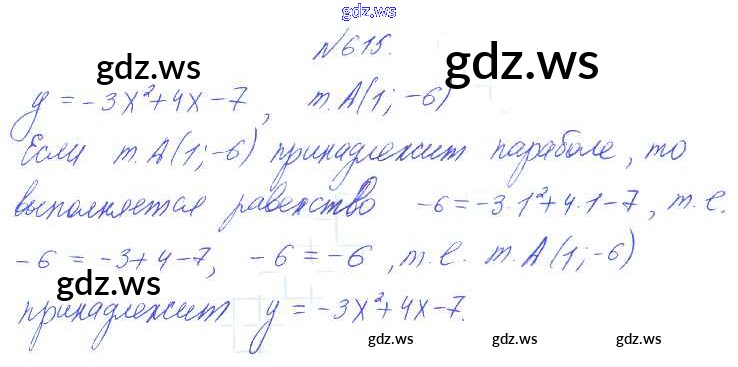 gdz.ws
№615.
gdz.ws gdz.ws
y = -3x²+4x-7, т.A(1; -6)
Если т.A(1; -6) принадлежит параболе, то
выполняется равенство -6=-3·1²+4·1-7, т.е.
-6 = -3+4-7, -6 = -6, т.е. т.A(1; -6)
gdz.ws
принадлежит y = -3x²+4x-7.
gdz.ws gdz.ws